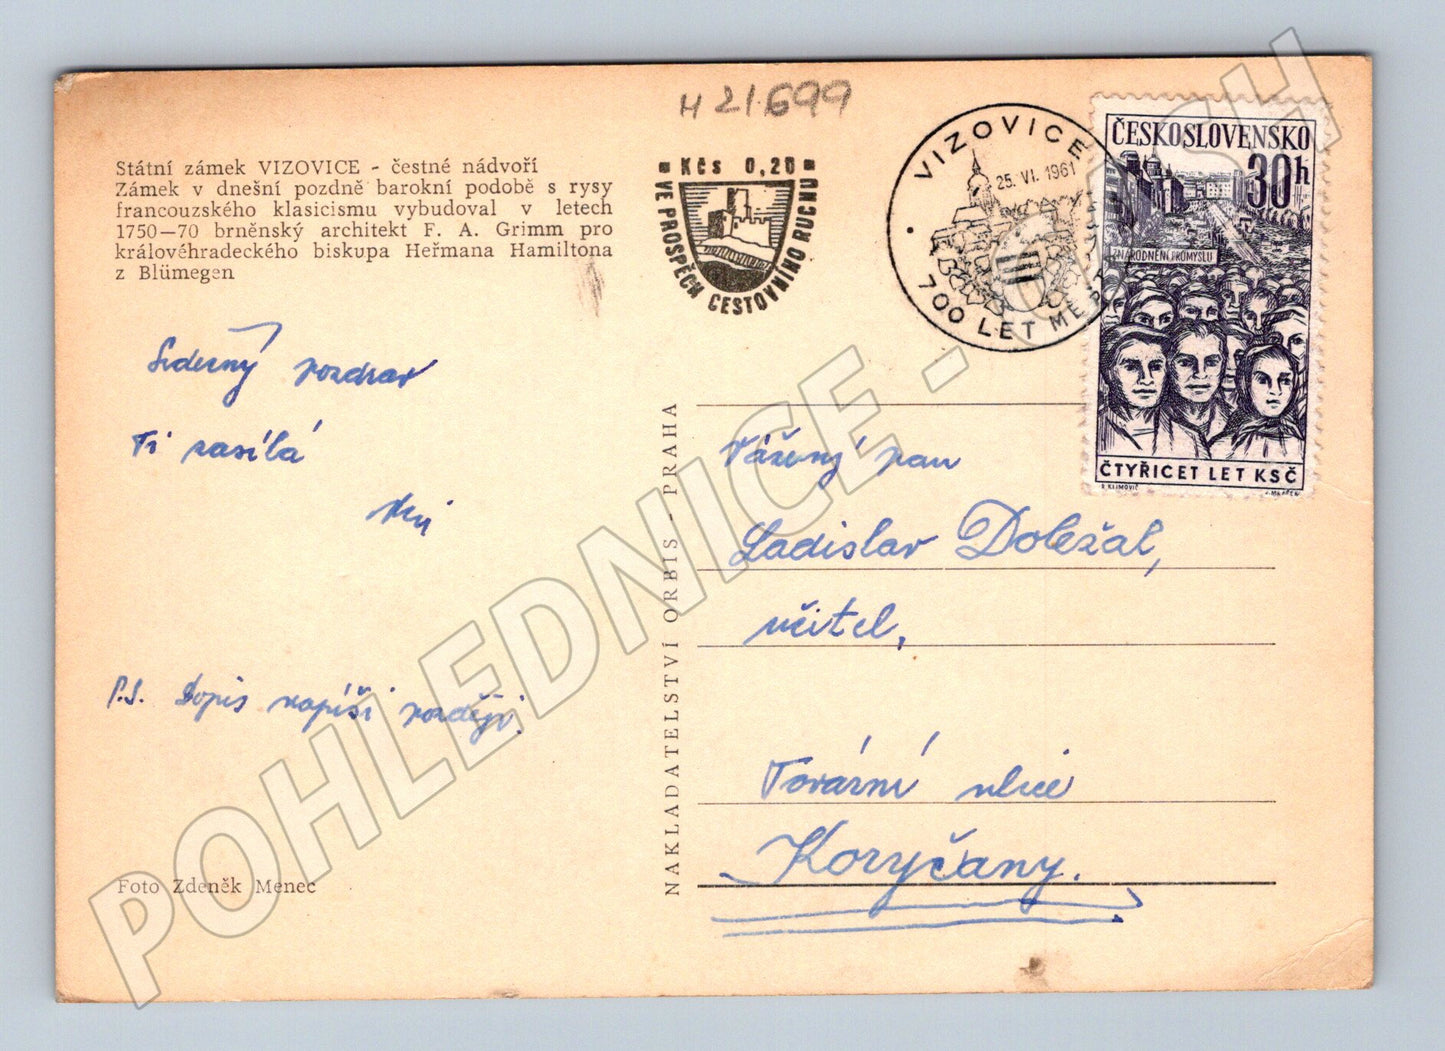 H 21.699
Státní zámek VIZOVICE - čestné nádvoří
Zámek v dnešní pozdně barokní podobě s rysy
francouzského klasicismu vybudoval v letech
1750—70 brněnský architekt F. A. Grimm pro
královéhradeckého biskupa Heřmana Hamiltona
z Blümegen
Kčs 0,20
VE PROSPĚCH CESTOVNÍHO RUCHU
VIZOVICE
25. VI. 1961
700 LET MĚ
ČESKOSLOVENSKO
30h
ZNÁRODNĚNÍ PRŮMYSLU
ČTYŘICET LET KSČ
Srdečný pozdrav
Ti zasílá
P.S. Dopis napíši později.
Foto Zdeněk Menec
NAKLADATELSTVÍ ORBIS - PRAHA
Vážený pan
Ladislav Doležal,
učitel,
Tovární ulice
Koryčany.
POHLEDNICE -